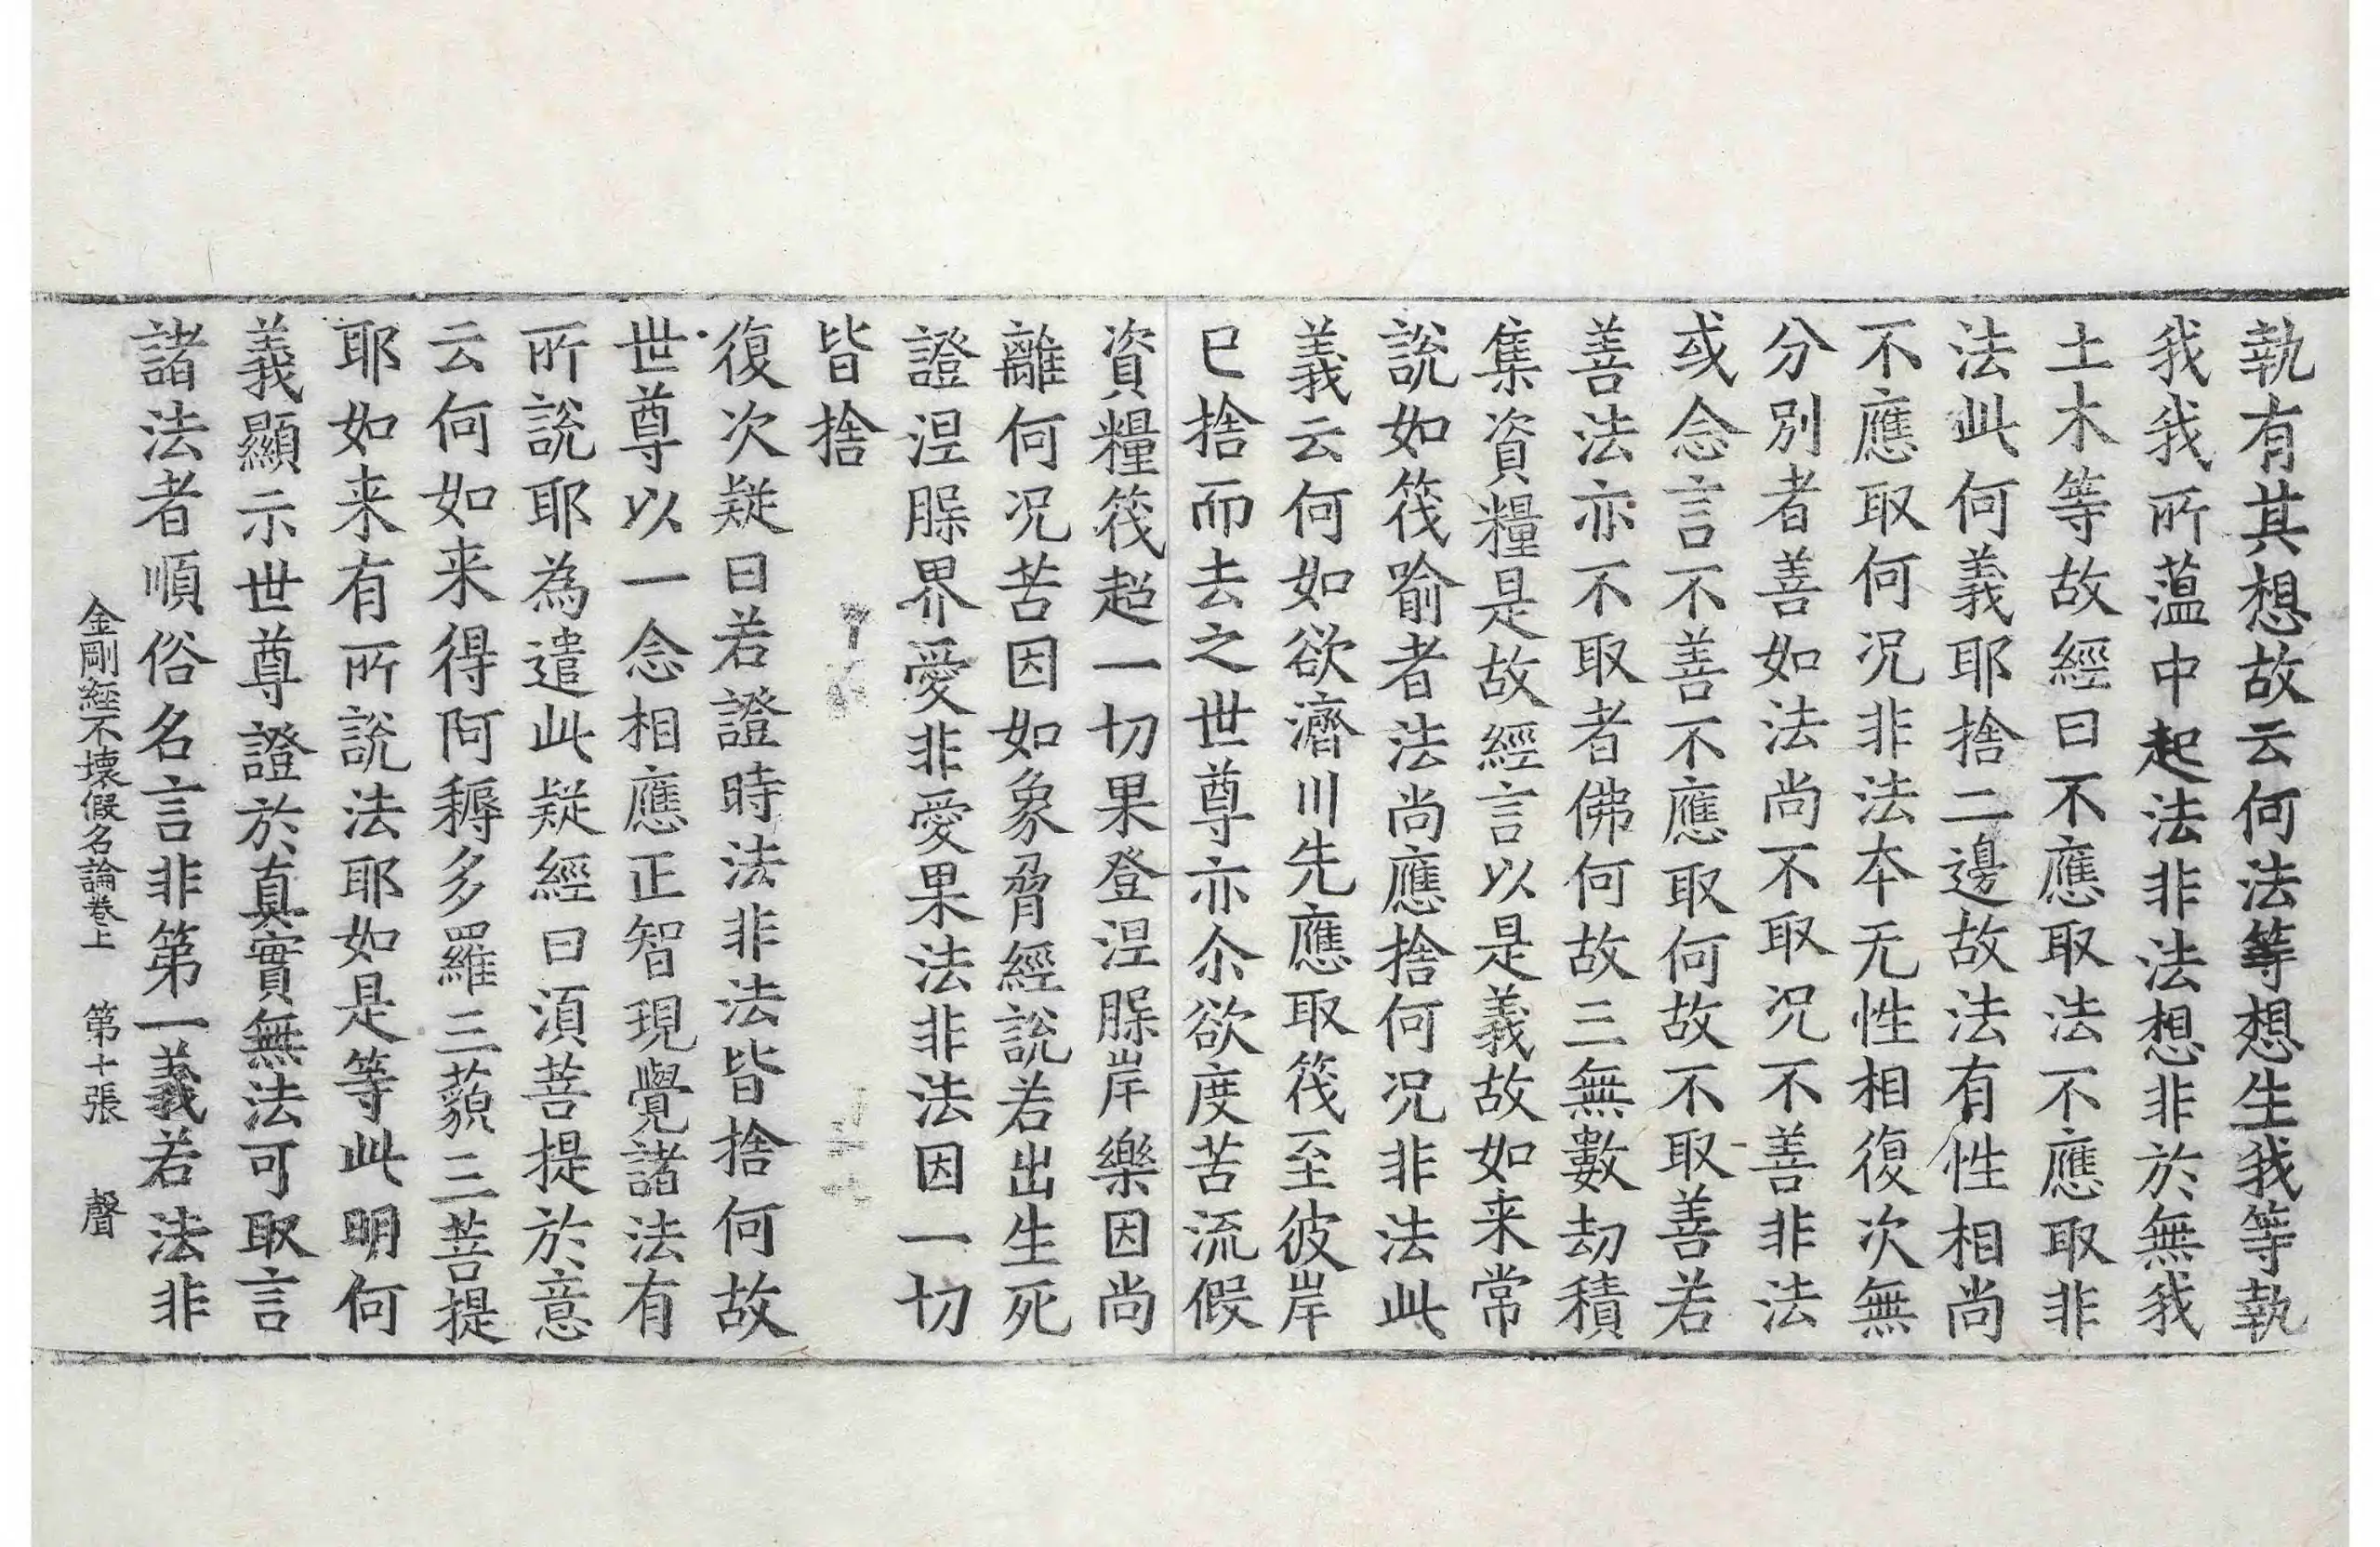 執有其想故云何法等想生我等執
我我所薀中起法非法想非於無我
土木等故經曰不應取法不應取非
法此何義耶捨二邊故法有性相尚
不應取何況非法本无性相復次無
分別者善如法尚不取況不善非法
或念言不善不應取何故不取善若
善法亦不取者佛何故三無數劫積
集資糧是故經言以是義故如来常
說如筏喻者法尚應捨何況非法此
義云何如欲濟川先應取筏至彼岸
已捨而去之世尊亦尒欲度苦流假
資糧筏超一切果登涅槃岸樂因尚
離何況苦因如象脅經說若出生死
證涅槃界愛非愛果法非法因一切
皆捨
復次疑曰若證時法非法皆捨何故
世尊以一念相應正智現覺諸法有
所說耶為遣此疑經曰湏菩提於意
云何如来得阿耨多羅三藐三菩提
耶如来有所說法耶如是等此明何
義顯示世尊證於真實無法可取言
諸法者順俗名言非第一義若法非
金剛經不壞假名論卷上　第十張　聲